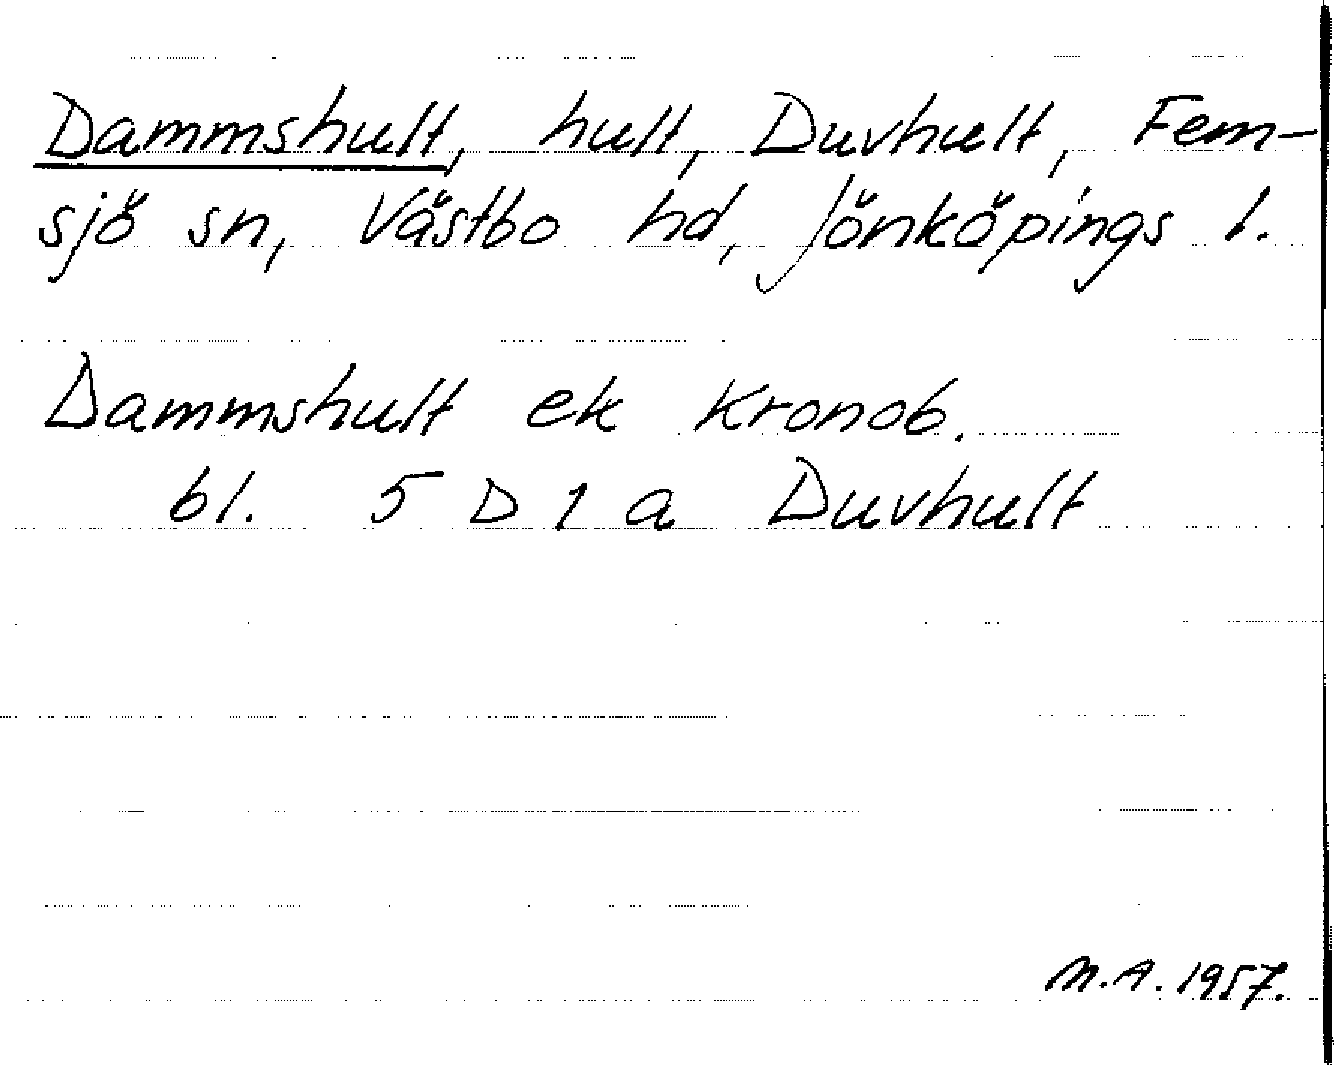 Dammshult, hult, Duvhult, Fem-
sjö sn, Västbo hd, Jönköpings l.
Dammshult ek Kronob.
bl. 5 D 1 a Duvhult
M.A. 1957.